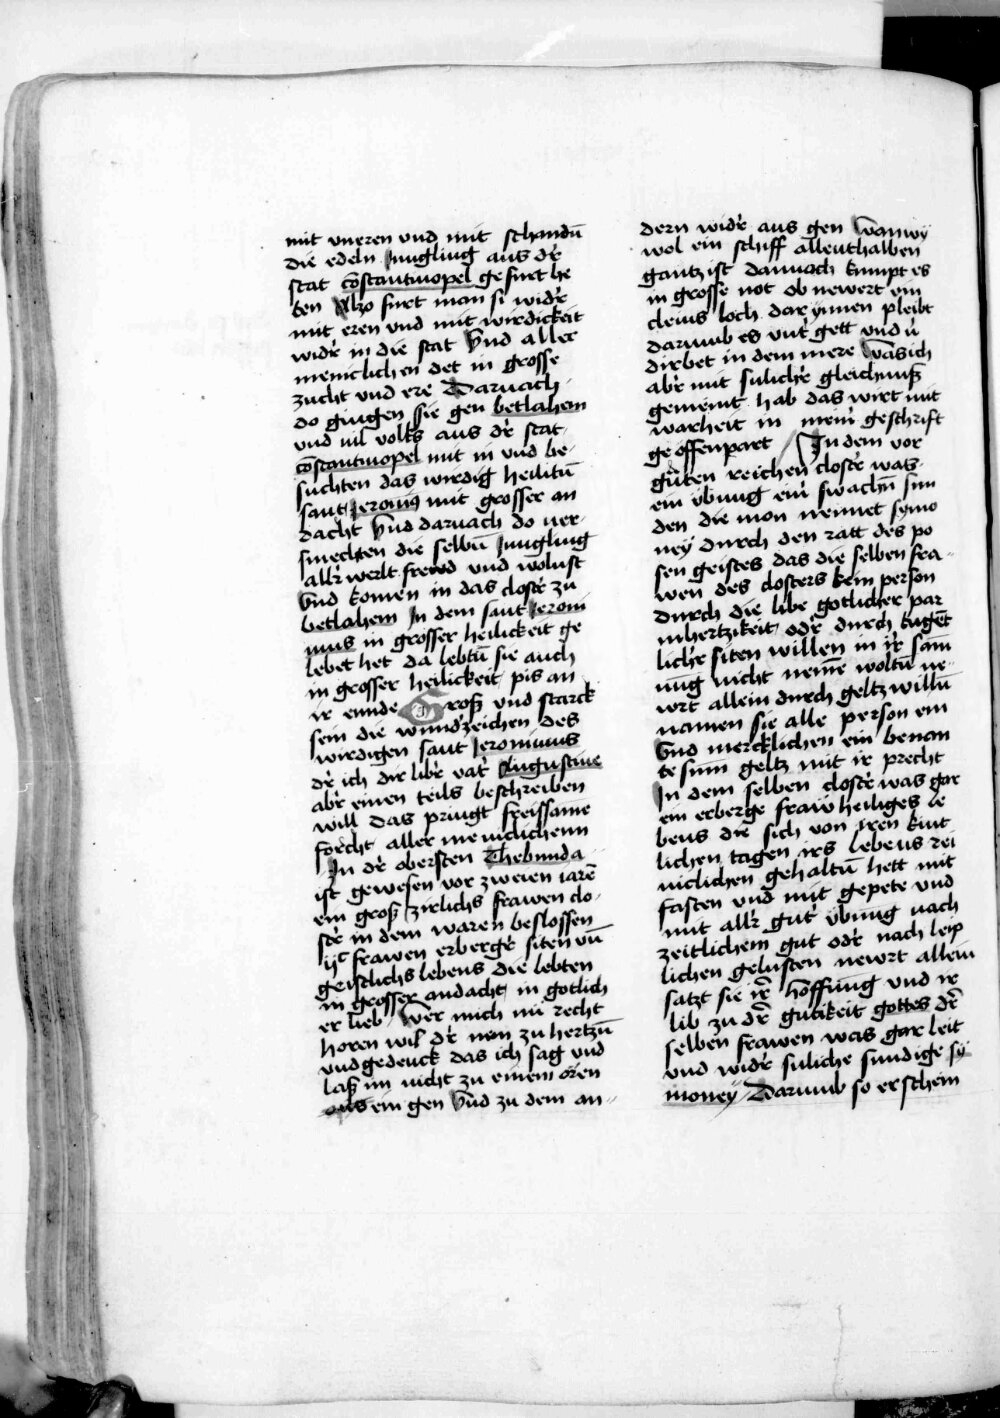 mit vneren vnd mit schandū
die edeln Jungling aus d'r
stat cōstantinopel gefurt he
ten Also furt man si wid'r
mit eren vnd mit wirdickeit
wid'r in die stat Vnd aller
meniclichen det in grosse
zucht vnd ere Darnach
do gingen sie gen betlahem
vnd vil volks aus d'r stat
cōstantinopel mit in vnd be-
suchten das wirdig heilitū
sant Jeronimus mit grosser an
dacht Vnd darnach do ver-
smechten die selbū Jungling
all'r werlt frewd vnd wolust
Vnd komen in das clost'r zu
betlahem In dem sant Jeroni
mus in grosser heilickeit ge
lebet het da lebtū sie auch
in grosser heilickeit pis an
ir ennde Groß vnd starck
sein die wundzeichen des
wirdigen sant Jeronimus
d'r ich dir lib'r vat'r Augustine
ab'r einen teils beschreiben
will das pringt freissame
forcht aller meniclichenn
In d'r obersten Thebunda
ist gewesen vor zweien iarē
ein groß zirlichs frawen clo-
st'r in dem waren beslossen
ijc frawen erberg'r siten vn̄
geistlichs lebens die lebten
in grosser andacht in gotlich
er lieb Wer mich nū recht
horen wil d'r nem zu hertzū
vnd gedenck das ich sag vnd
laß im nicht zu einem oren
als ein gen Vnd zu dem an-
dern wid'r aus gen Wan wy
wol ein schiff allenthalben
gantz ist dannoch kumpt es
in grosse not ob newert ein
cleins loch dar ynnen pleibt
darumb es vnt'r gett vnd v̄
dirbet in dem mere Was ich
ab'r mit sulich'r gleichnuß
gemeint hab das wirt mit
warheit in mein' geschrift
geoffenpart In dem vor
gūten reichen clost'r was
ein vbung ein' swachn̄ sun
den die mon nennet symo
ney durch den ratt des po
sen geistes das die selben fra-
wen des closters kein person
durch die libe gotlicher par
mhertzikeit od'r durch tugēt
lich'r siten willen in ir' sam
nūg nicht nemē woltū ne-
wrt allein durch geltz willū
namen sie alle person ein
Vnd mercklichen ein benan
te sum geltz mit ir precht
In dem selben clost'r was gar
ein erberge fraw heiliges le
bens die sich von iren kint
lichen tagen irs lebens rei
niclichen gehaltū hett mit
fasten vnd mit gepete vnd
mit all'r gut'r vbung nach
zeitlichem gut od'r nach leip
lichen gelusten newrt allein
satzt sie ir' hoffnūg vnd ir
lib zu d'r gutikeit gottes d'r
selben frawen was gar leit
vnd wid'r suliche sundige sy
money Darumb so erschein